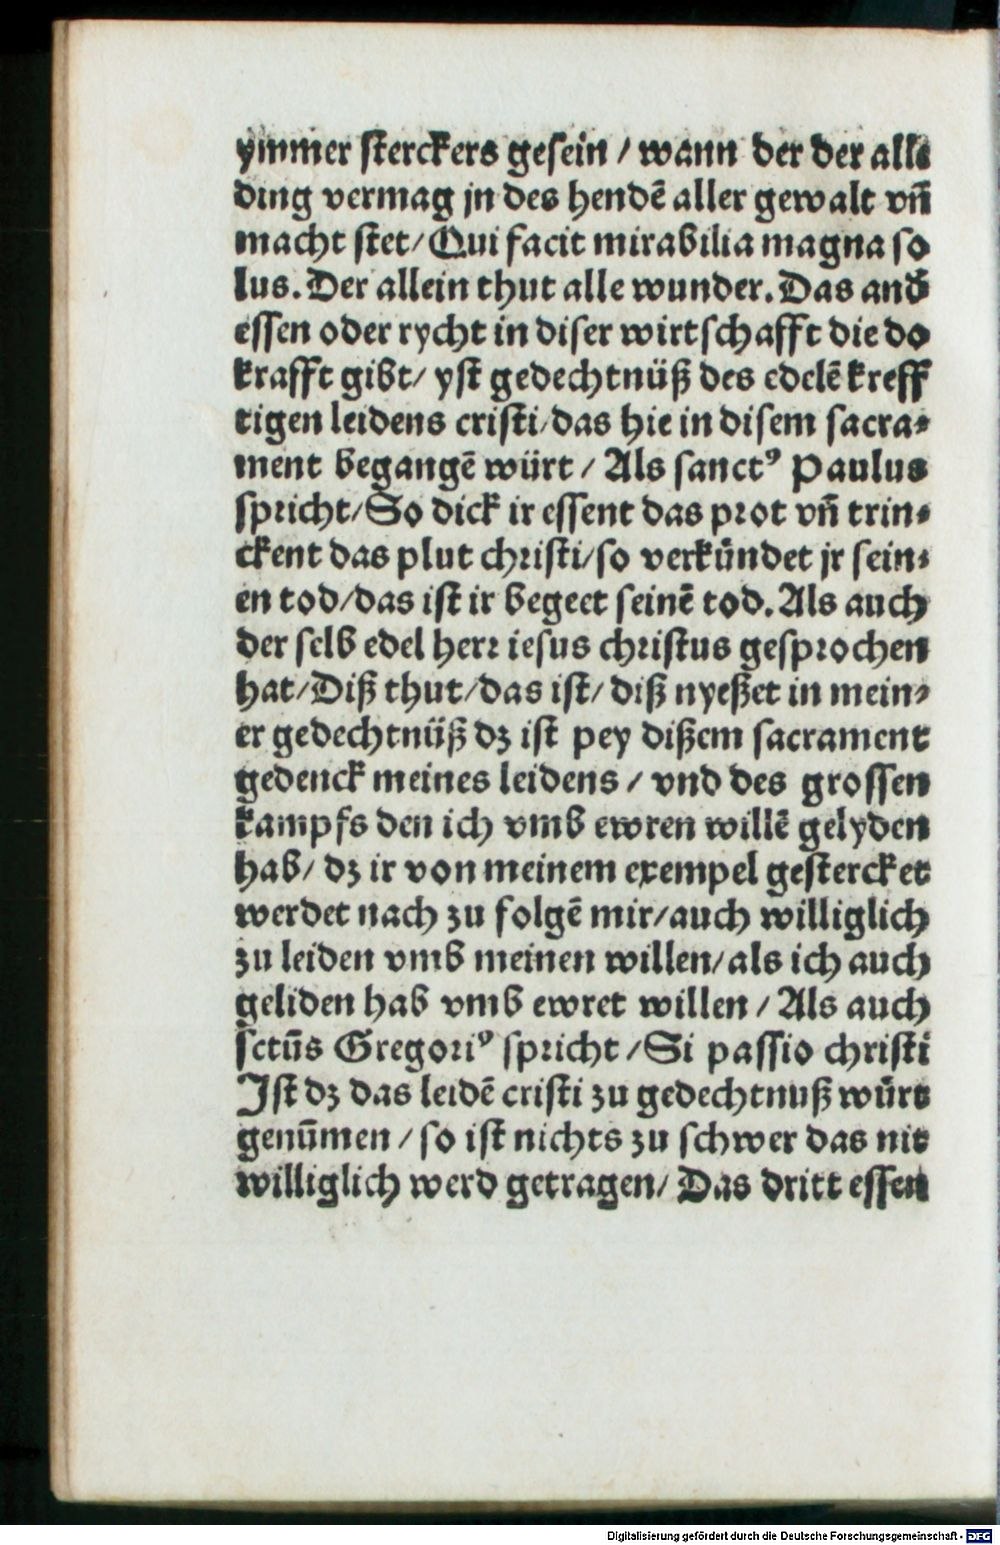 ymmer sterckers gesein / wann der der alle
ding vermag jn des hendē aller gewalt vn̄
macht stet/ Qui facit mirabilia magna so
lus. Der allein thut alle wunder. Das and̛
essen oder rycht in diser wirtschafft die do
krafft gibt/ yst gedechtnüß des edelē kreff
tigen leidens cristi/das hie in disem sacra⸗
ment begangē würt / Als sanctꝰ Paulus
spricht/ So dick ir essent das prot vn̄ trin⸗
ckent das plut christi/so verkündet jr sein⸗
en tod/das ist ir begeet seinē tod. Als auch
der selb edel herr iesus christus gesprochen
hat/Diß thut/das ist/ diß nyeßet in mein⸗
er gedechtnüß dz ist pey dißem sacrament
gedenck meines leidens / vnd des grossen
kampfs den ich vmb ewren willē gelyden
hab/ dz ir von meinem exempel gestercket
werdet nach zu folgē mir/auch williglich
zu leiden vmb meinen willen/als ich auch
geliden hab vmb ewret willen / Als auch
sctūs Gregoriꝰ spricht /Si passio christi
Jst dz das leidē cristi zu gedechtnuß würt
genūmen / so ist nichts zu schwer das nit
williglich werd getragen/ Das dritt essen
Digitalisierung gefördert durch die Deutsche Forschungsgemeinschaft - DFG